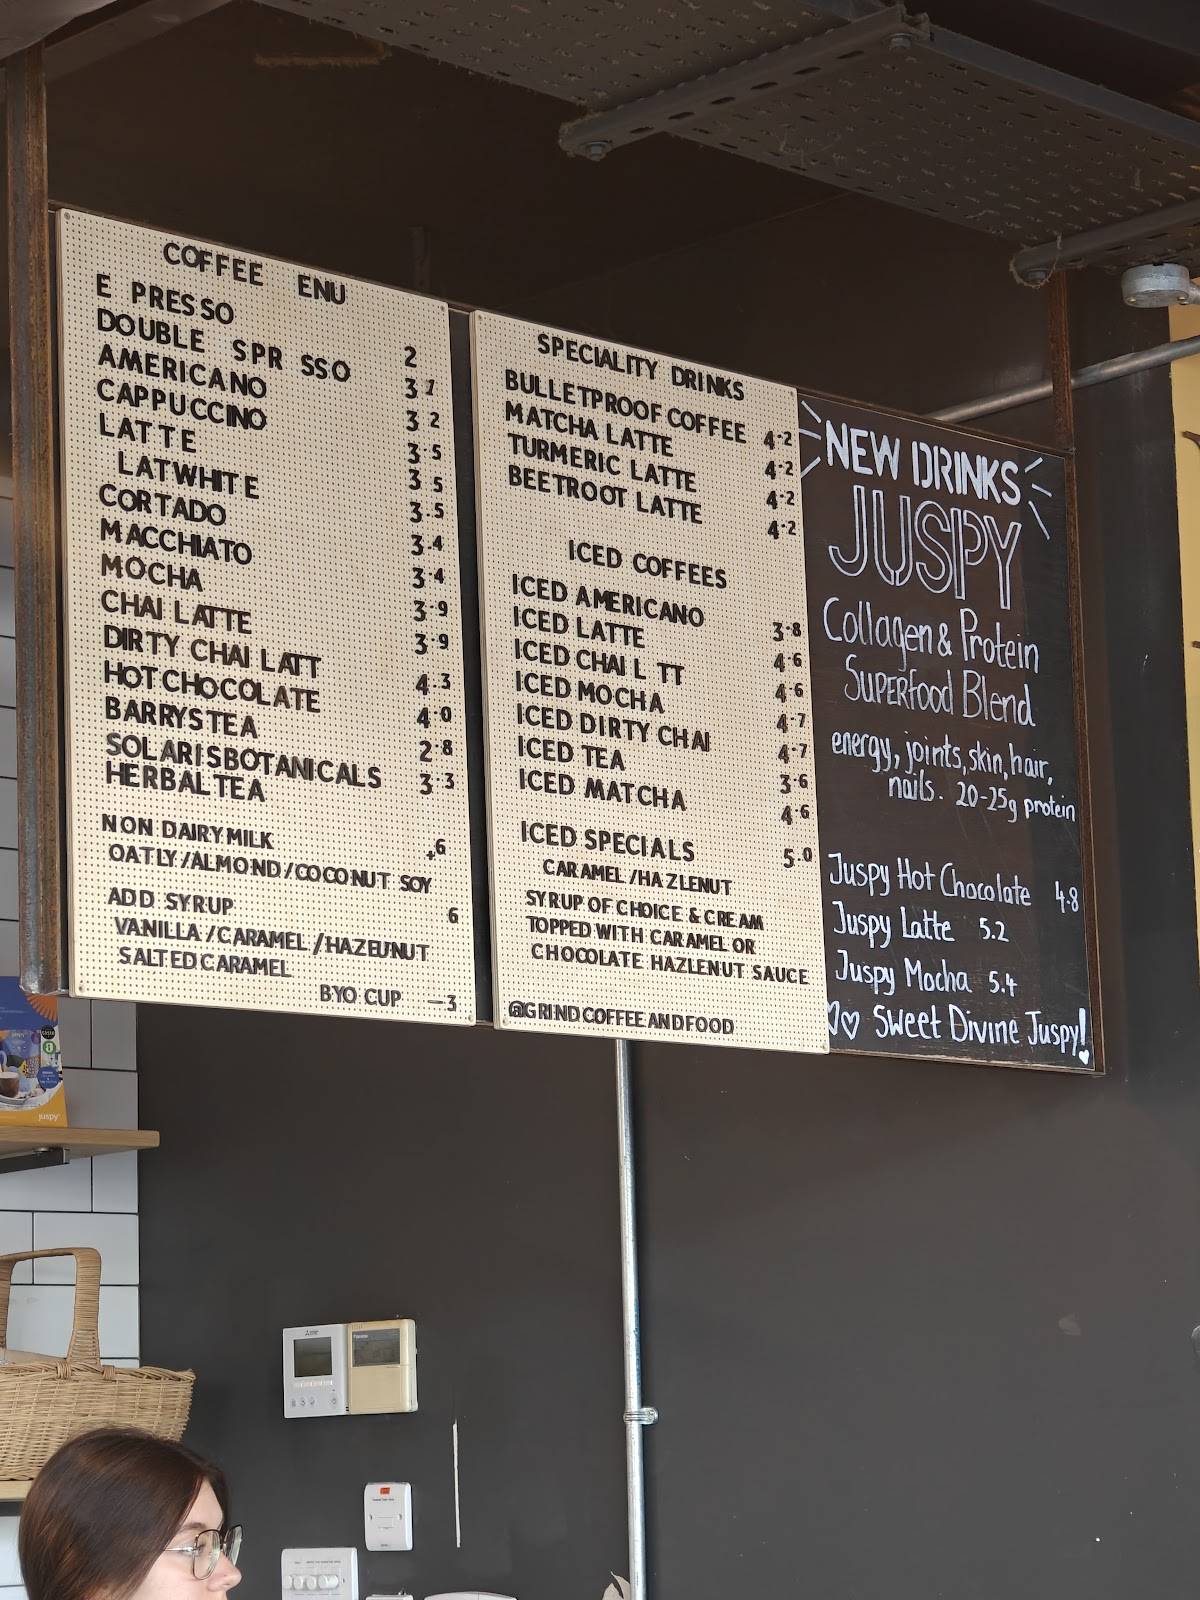 COFFEE ENU
E PRESSO 2
DOUBLE SPR SSO 3 1
AMERICANO 3 2
CAPPUCCINO 3·5
LATTE 3 5
LATWHITE 3·5
CORTADO 3·4
MACCHIATO 3·4
MOCHA 3·9
CHAI LATTE 3·9
DIRTY CHAI LATT 4·3
HOT CHOCOLATE 4·0
BARRYS TEA 2·8
SOLARIS BOTANICALS 3·3
HERBAL TEA
NON DAIRY MILK +6
OATLY/ALMOND/COCONUT SOY
ADD SYRUP 6
VANILLA/CARAMEL/HAZELNUT
SALTED CARAMEL
BYO CUP —3
SPECIALITY DRINKS
BULLETPROOF COFFEE 4·2
MATCHA LATTE 4·2
TURMERIC LATTE 4·2
BEETROOT LATTE 4·2
ICED COFFEES
ICED AMERICANO 3·8
ICED LATTE 4·6
ICED CHAI L TT 4·6
ICED MOCHA 4·7
ICED DIRTY CHAI 4·7
ICED TEA 3·6
ICED MATCHA 4·6
ICED SPECIALS 5·0
CARAMEL/HAZLENUT
SYRUP OF CHOICE & CREAM
TOPPED WITH CARAMEL OR
CHOCOLATE HAZLENUT SAUCE
@GRINDCOFFEEANDFOOD
NEW DRINKS
JUSPY
Collagen & Protein
SUPERfood Blend
energy, joints, skin, hair,
nails. 20-25g protein
Juspy Hot Chocolate 4.8
Juspy Latte 5.2
Juspy Mocha 5.4
Sweet Divine Juspy!
juspy